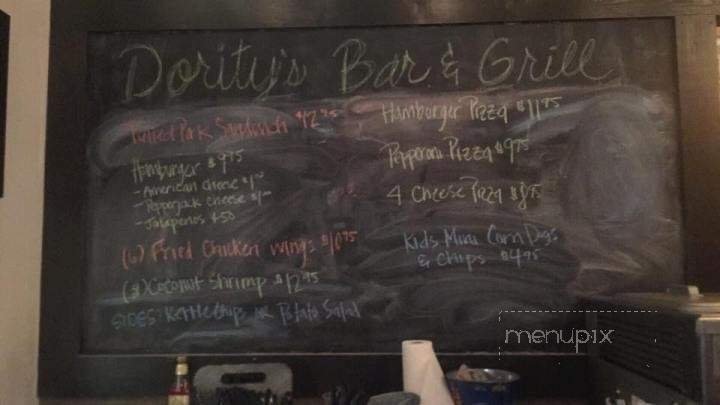 Dority's Bar & Grill
Pulled Pork Sandwich $12.95
Hamburger $9.95
- American cheese $1.00
- Pepperjack cheese $1.00
- Jalapenos $.50
(6) Fried Chicken wings $10.95
Coconut Shrimp $12.95
SIDES: Kettle Chips or Potato Salad
Hamburger Pizza $11.95
Pepperoni Pizza $9.95
4 Cheese Pizza $8.95
Kids Mini Corn Dogs
& Chips $4.95
menupix